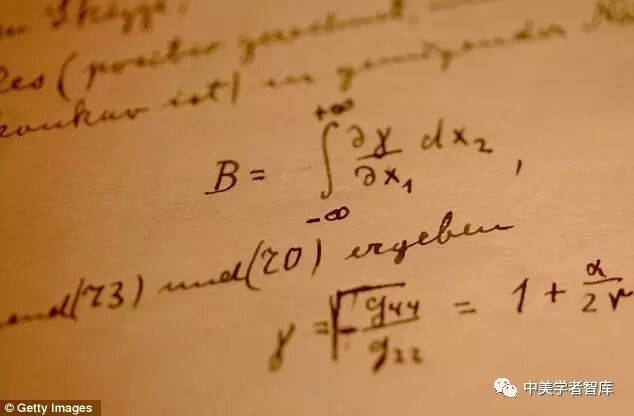 Skizze.
(positiv gerechnet, 
konkav ist) in genügender
B = ∫_{-∞}^{+∞} ∂γ/∂x₁ dx₂ ,
(73) und (70) ergeben
γ = √(-g₄₄/g₂₂) = 1 + α/2r
© Getty Images
中美学者智库